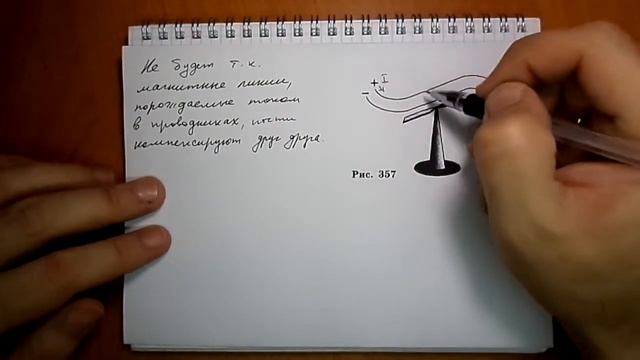 Не будет т.к.
магнитные линии,
порождаемые током
в проводниках, почти
компенсируют друг друга.
+ I
-
Рис. 357